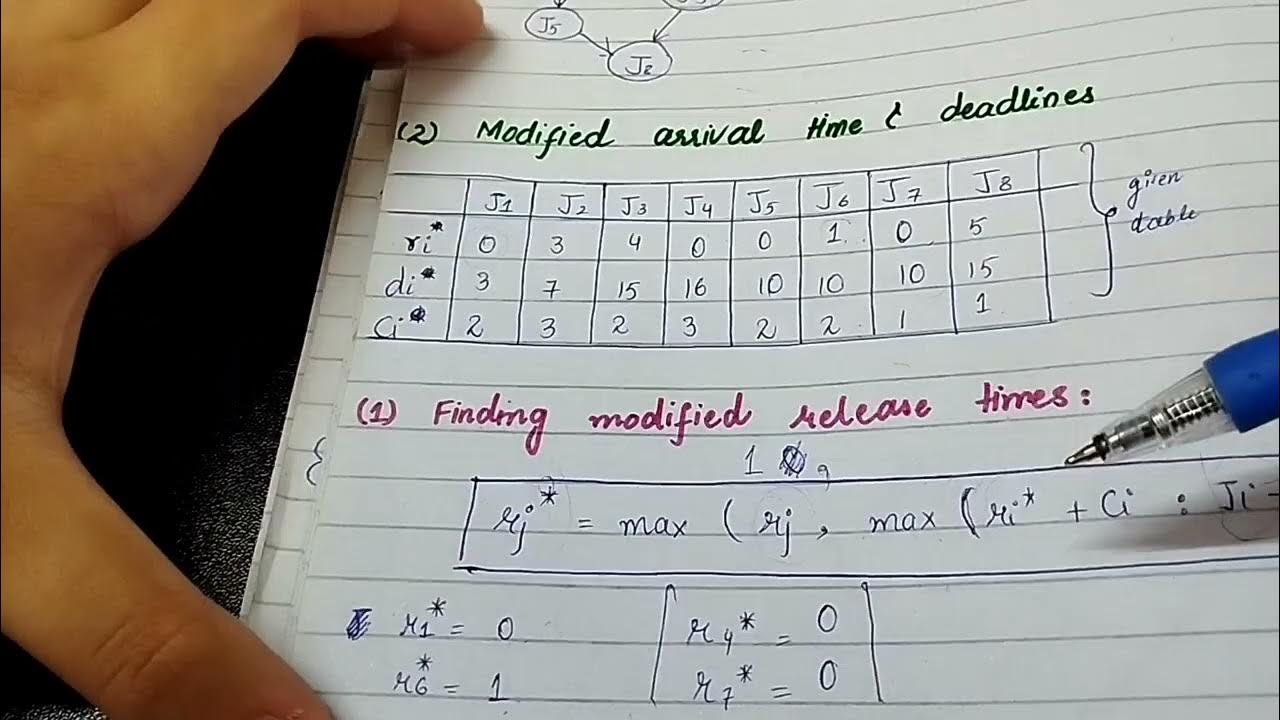 J5
J2
(2) Modified arrival time & deadlines
J1 J2 J3 J4 J5 J6 J7 J8
ri* 0 3 4 0 0 1 0 5
di* 3 7 15 16 10 10 10 15
Ci* 2 3 2 3 2 2 1 1
given
table
(1) Finding modified release times:
1 ,
rj* = max ( rj , max ( ri* + Ci : Ji
r1* = 0 r4* = 0
r6* = 1 r7* = 0